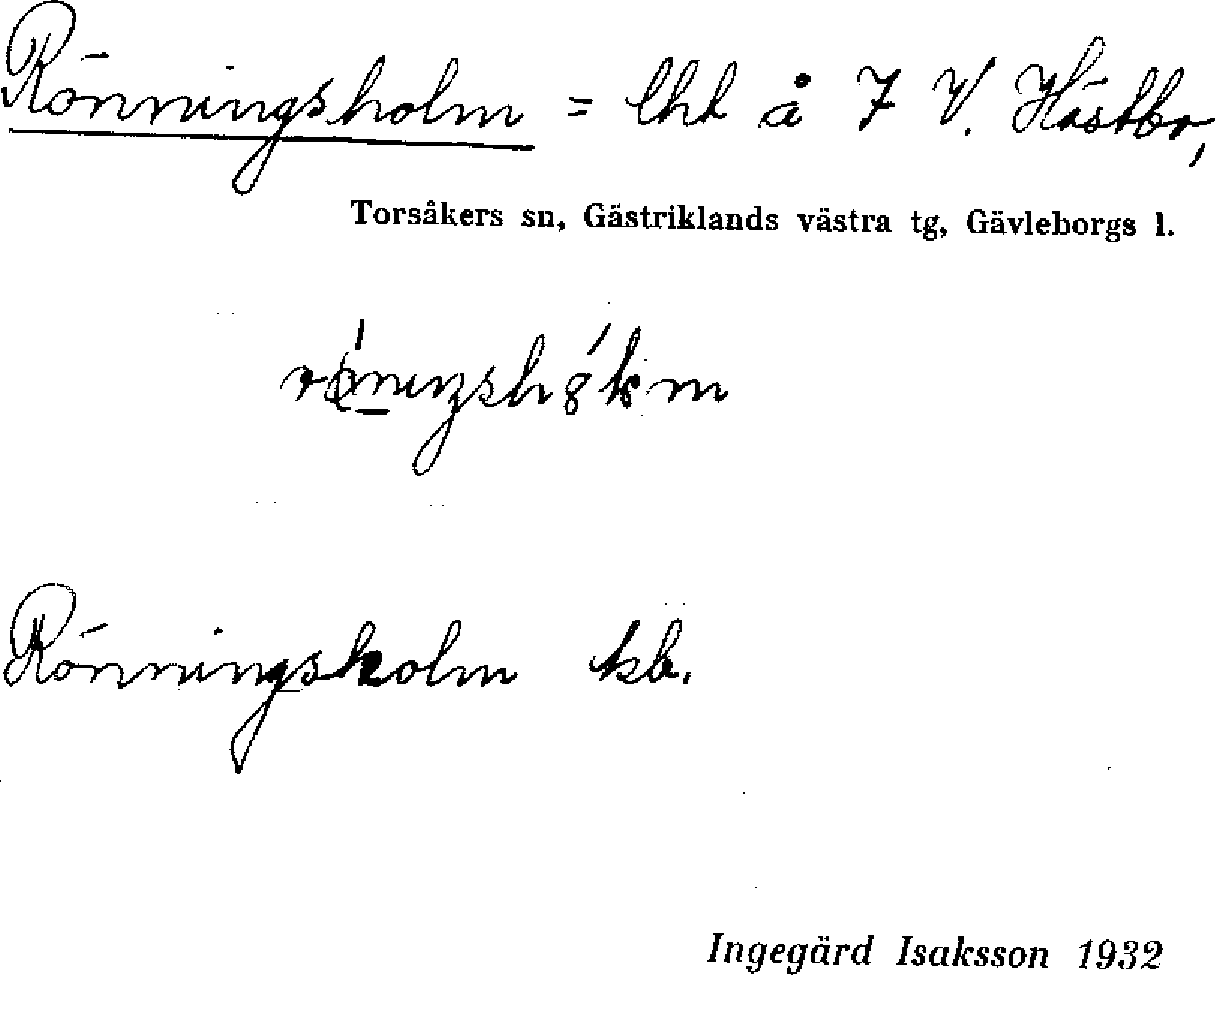 Rönningsholm = lht å 7 V. Hästbo,
Torsåkers sn, Gästriklands västra tg, Gävleborgs l.
Rönningsholm kb.
Ingegärd Isaksson 1932